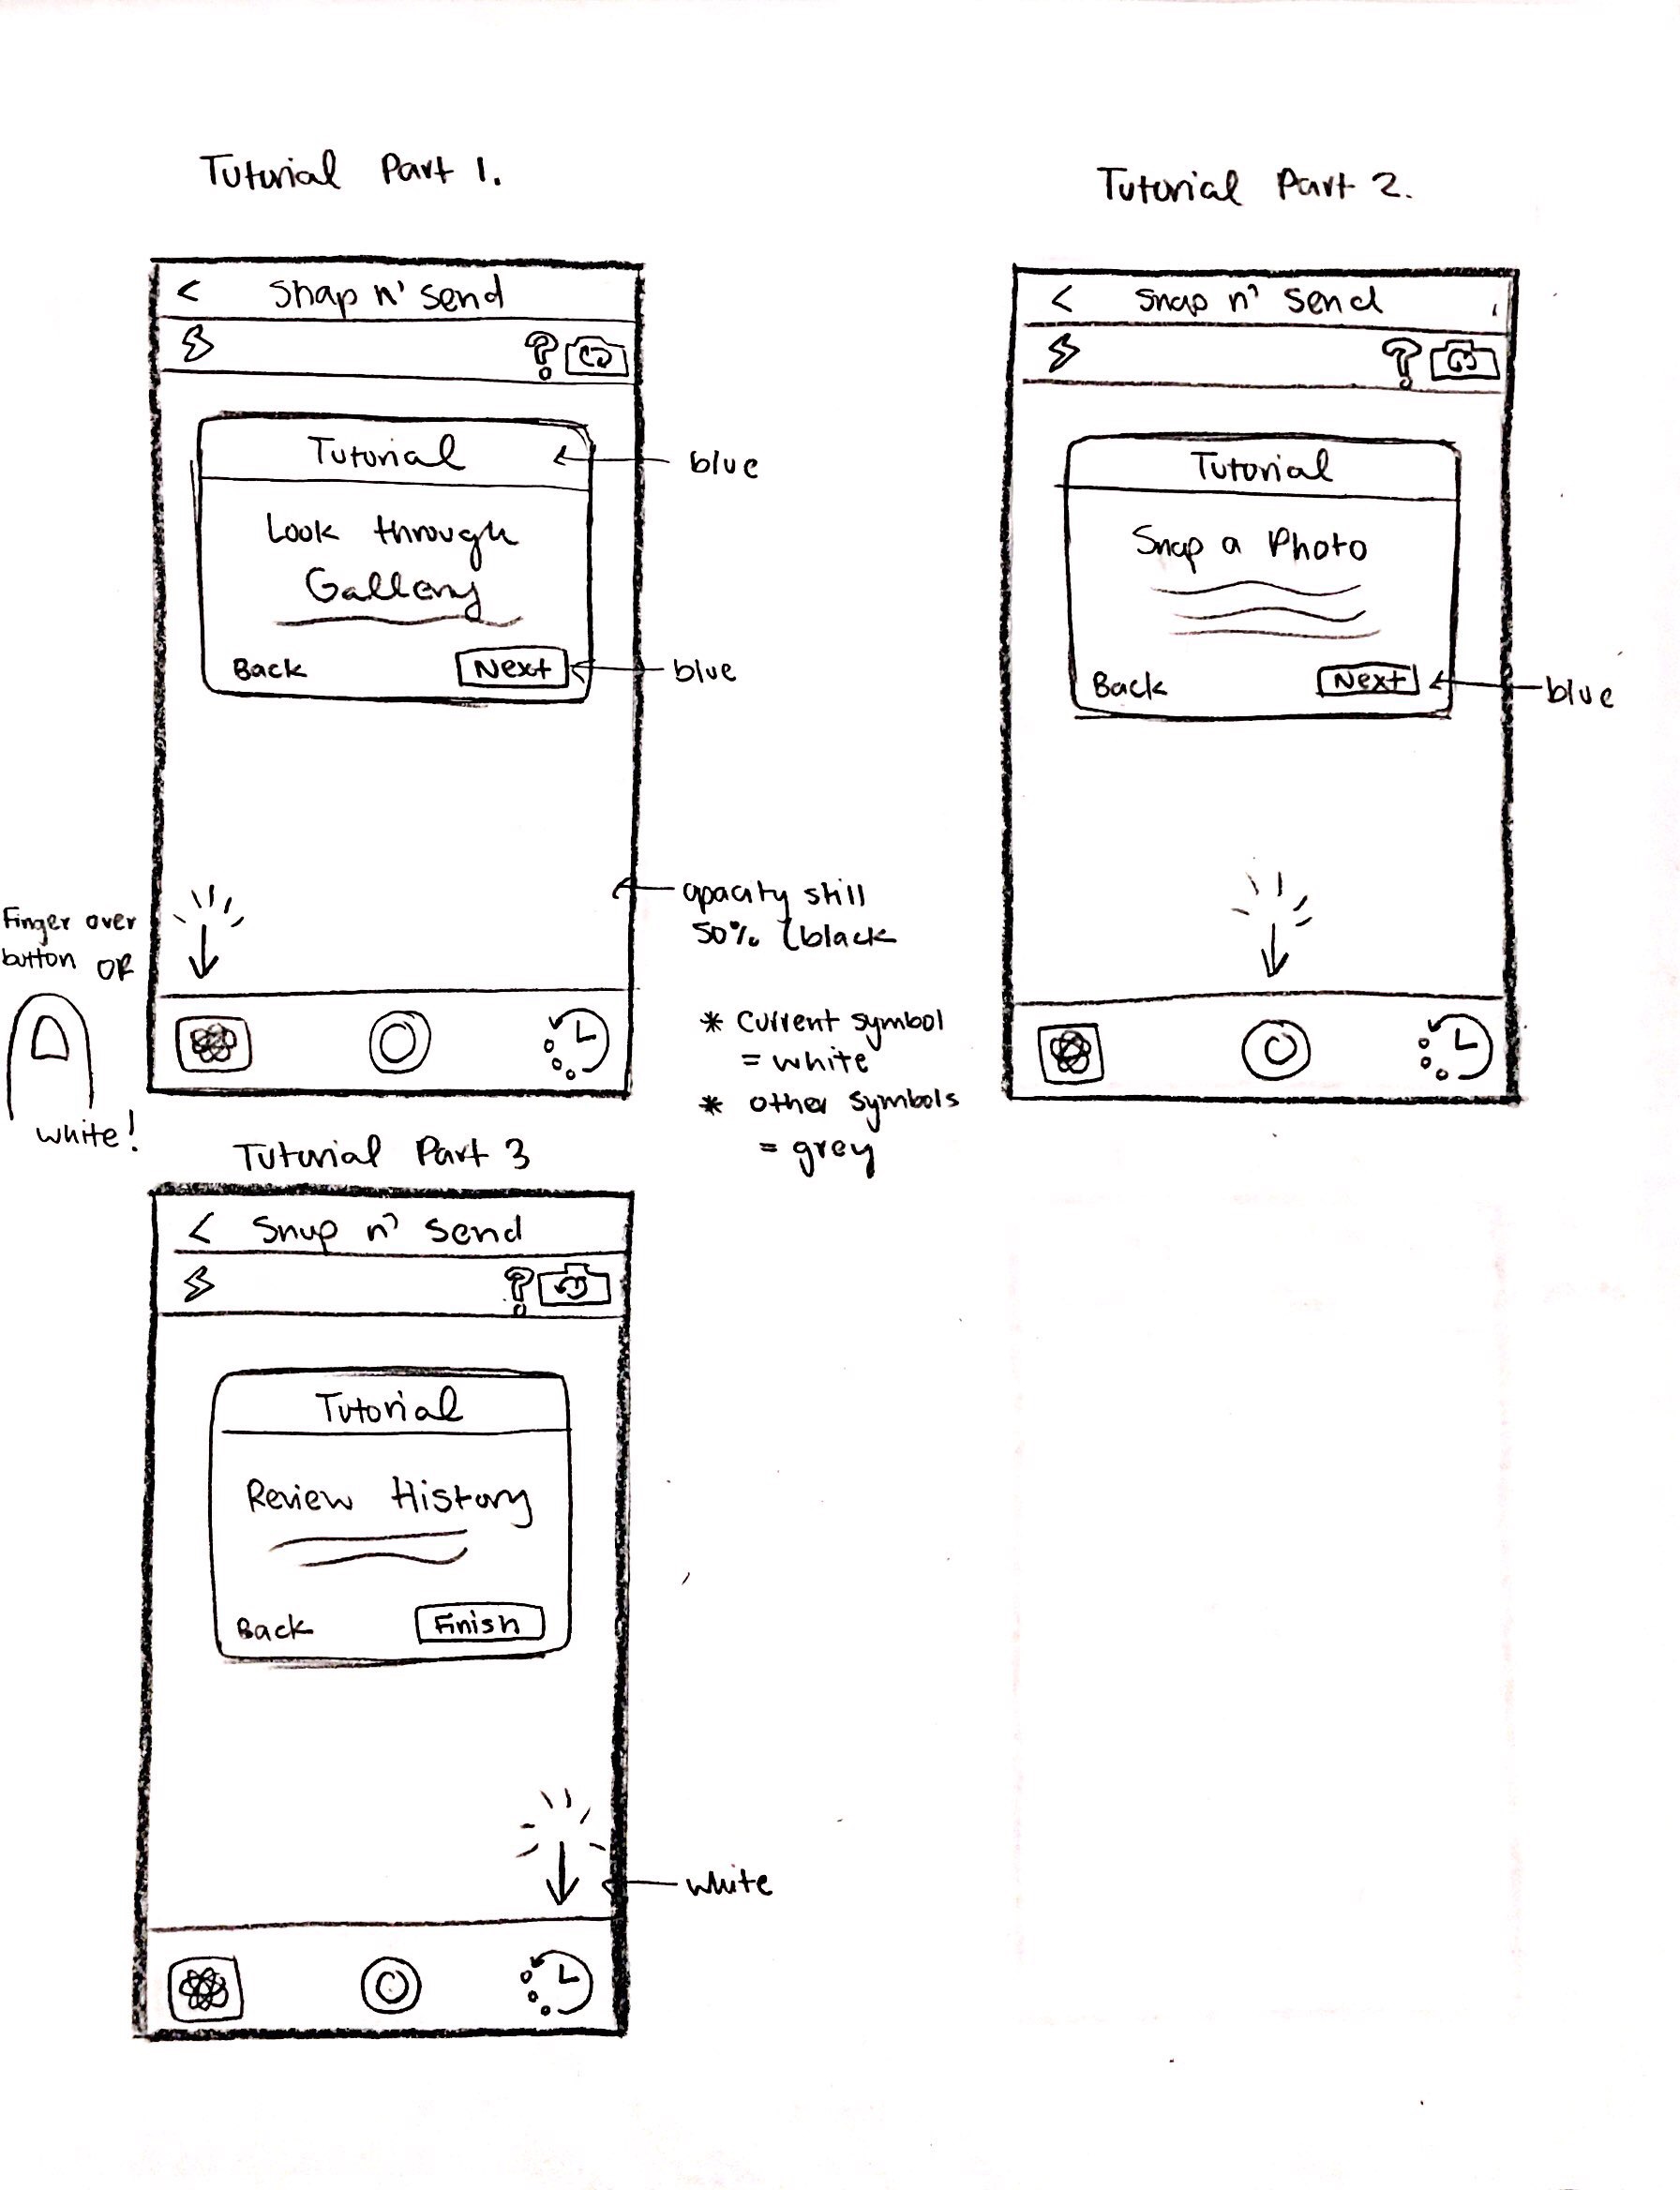 Tutorial Part 1.
< Snap n' Send
?
Tutorial
blue
Look through
Gallery
Back Next
blue
Finger over
button OR
white!
opacity still
50% black
* Current symbol
= white
* other symbols
= grey
Tutorial Part 2.
< Snap n' Send
?
Tutorial
Snap a Photo
Back Next
blue
Tutorial Part 3
< Snap n' Send
?
Tutorial
Review History
Back Finish
white